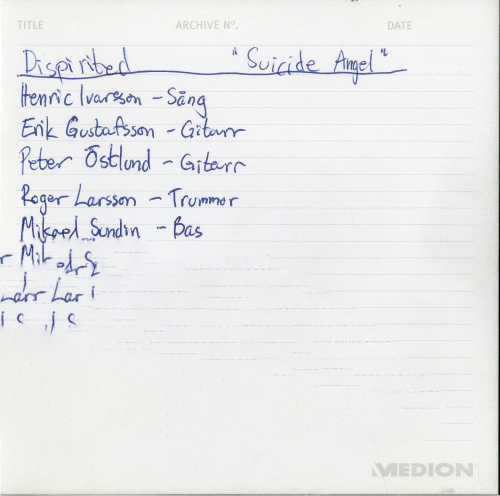 TITLE ARCHIVE Nº. DATE
Dispirited "Suicide Angel"
Henric Ivarsson - Sång
Erik Gustafsson - Gitarr
Peter Östlund - Gitarr
Roger Larsson - Trummor
Mikael Sundin - Bas
MEDION